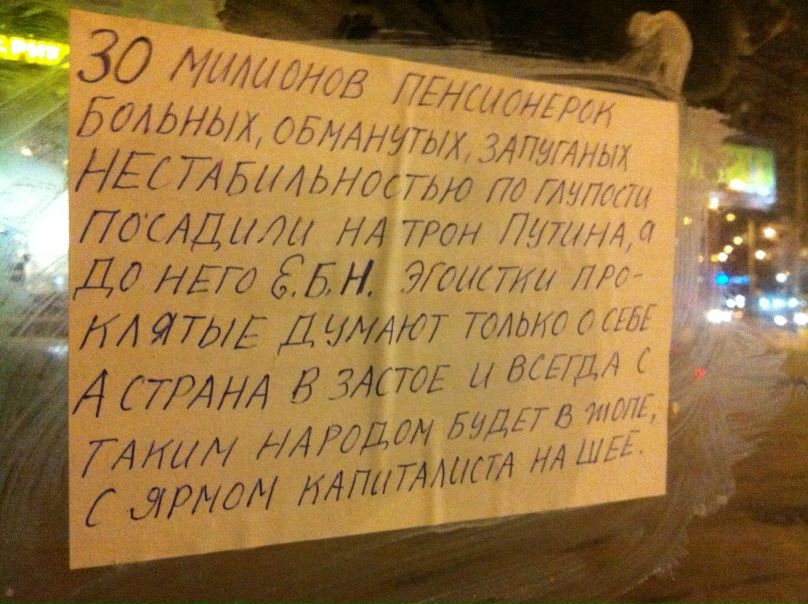 30 МИЛИОНОВ ПЕНСИОНЕРОК
БОЛЬНЫХ, ОБМАНУТЫХ, ЗАПУГАНЫХ
НЕСТАБИЛЬНОСТЬЮ ПО ГЛУПОСТИ
ПОСАДИЛИ НА ТРОН ПУТИНА, а
ДО НЕГО Е.Б.Н. ЭГОИСТКИ ПРО-
КЛЯТЫЕ ДУМАЮТ ТОЛЬКО О СЕБЕ
А СТРАНА В ЗАСТОЕ И ВСЕГДА С
ТАКИМ НАРОДОМ БУДЕТ В ЖОПЕ,
С ЯРМОМ КАПИТАЛИСТА НА ШЕЕ.